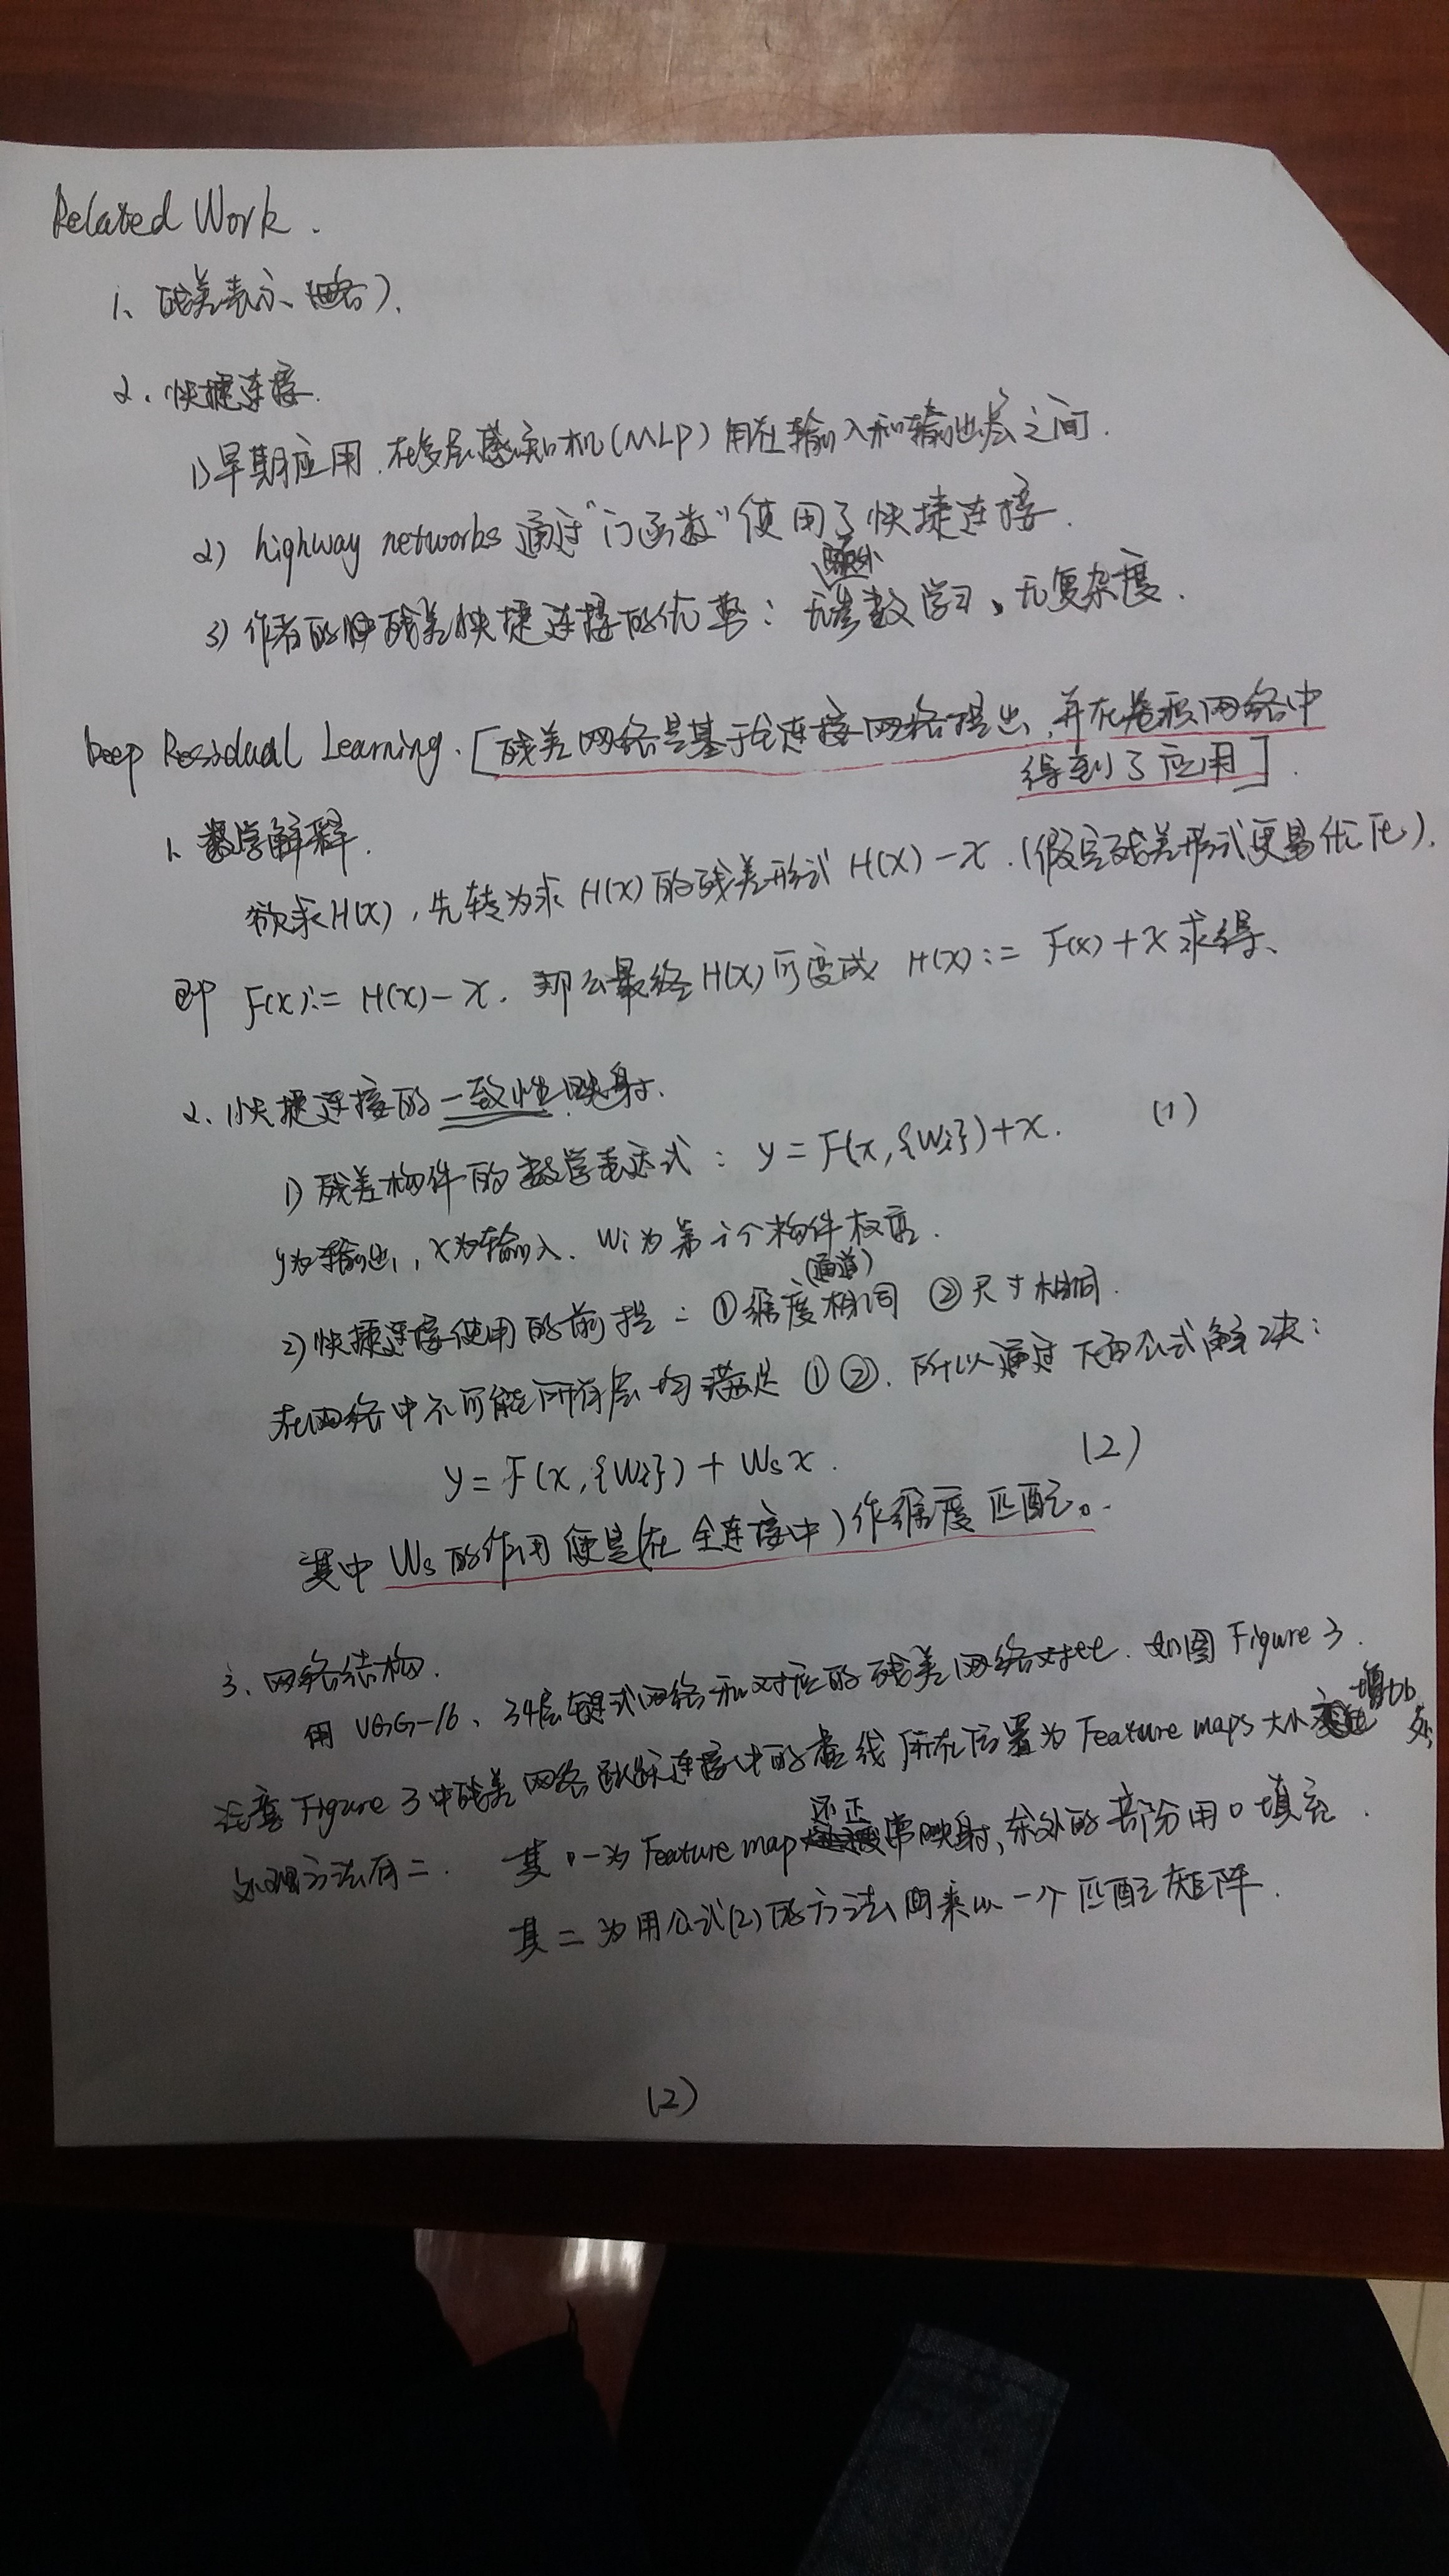 Related Work.
1、残差表示(略).
2、快捷连接.
1)早期应用.在多层感知机(MLP)用在输入和输出层之间.
2) highway networks 通过“门函数”使用了快捷连接.
额外
3)作者的残差快捷连接的优势：无参数学习、无复杂度.
Deep Residual Learning.[残差网络是基于全连接网络提出,并在卷积网络中
得到了应用].
1、数学解释.
欲求H(x),先转为求H(x)的残差形式H(x)-x.(假定残差形式更易优化).
即 F(x):=H(x)-x.那么最终H(x)可变成 H(x):=F(x)+x求得、
2、快捷连接的一致性映射.
1)残差构件的数学表达式：y=F(x,{Wi})+x. (1)
y为输出,x为输入、Wi为第i个构件权重.
(通道)
2)快捷连接使用的前提：①维度相同 ②尺寸相同.
在网络中不可能所有层均满足①②.所以通过下面公式解决：
y=F(x,{Wi})+Wsx. (2)
其中Ws的作用便是(在全连接中)作维度匹配。
3、网络结构.
用VGG-16、34层链式网络和对应的残差网络对比.如图Figure 3.
注意Figure 3中残差网络跳跃连接中的虚线所在位置为Feature maps大小增加
处理方法有二. 其一为Feature map还正常映射,余外的部分用0填充.
其二为用公式(2)的方法来以一个匹配矩阵.
(2)